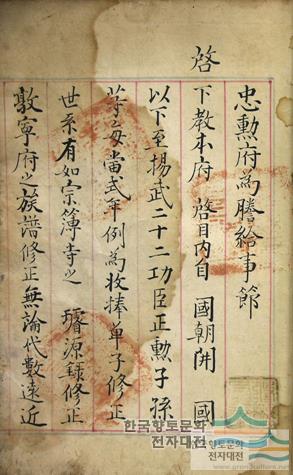 忠勲府為謄給事節
啓
下教本府 啓目內自 國朝開 國
以下至揚武二十二功臣正勲子孫
等每當式年例為收捧單子修正
世系有如宗簿寺之 璿源錄修正
敦寧府之族譜修正無論代數遠近
한국향토문화
전자대전
한국향토문화
전자대전
www.grandculture.net